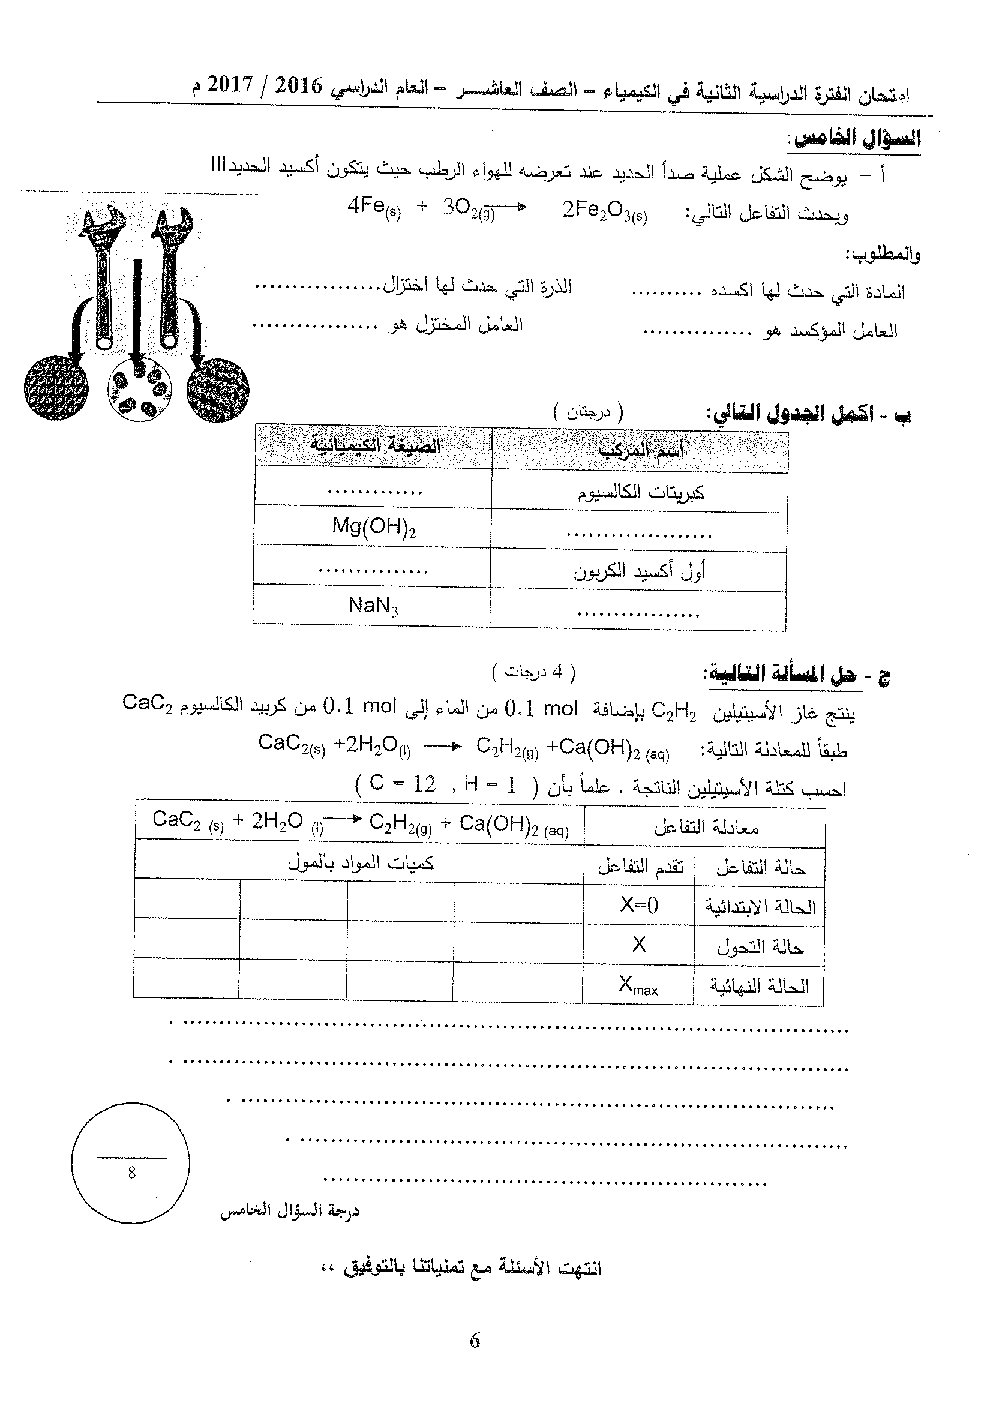 امتحان الفترة الدراسية الثانية في الكيمياء – الصف العاشـــر – العام الدراسي 2016 / 2017 م
السؤال الخامس:
أ – يوضح الشكل عملية صدأ الحديد عند تعرضه للهواء الرطب حيث يتكون أكسيد الحديدIII
ويحدث التفاعل التالي: 4Fe(s) + 3O2(g) → 2Fe2O3(s)
والمطلوب:
المادة التي حدث لها اكسده .......... الذرة التي حدث لها اختزال.................
العامل المؤكسد هو ............... العامل المختزل هو .................
ب - اكمل الجدول التالي: ( درجتان )
أسم المركب الصيغة الكيميائية
كبريتات الكالسيوم .............
.................... Mg(OH)2
أول أكسيد الكربون ...............
................. NaN3
ج - حل المسألة التالية: ( 4 درجات )
ينتج غاز الأسيتيلين C2H2 بإضافة 0.1 mol من الماء إلى 0.1 mol من كربيد الكالسيوم CaC2
طبقاً للمعادلة التالية: CaC2(s) +2H2O(l) → C2H2(g) +Ca(OH)2 (aq)
احسب كتلة الأسيتيلين الناتجة . علماً بأن ( C = 12 , H = 1 )
معادلة التفاعل CaC2 (s) + 2H2O (l) → C2H2(g) + Ca(OH)2 (aq)
حالة التفاعل تقدم التفاعل كميات المواد بالمول
الحالة الابتدائية X=0
حالة التحول X
الحالة النهائية Xmax
8
درجة السؤال الخامس
انتهت الأسئلة مع تمنياتنا بالتوفيق ،،
6